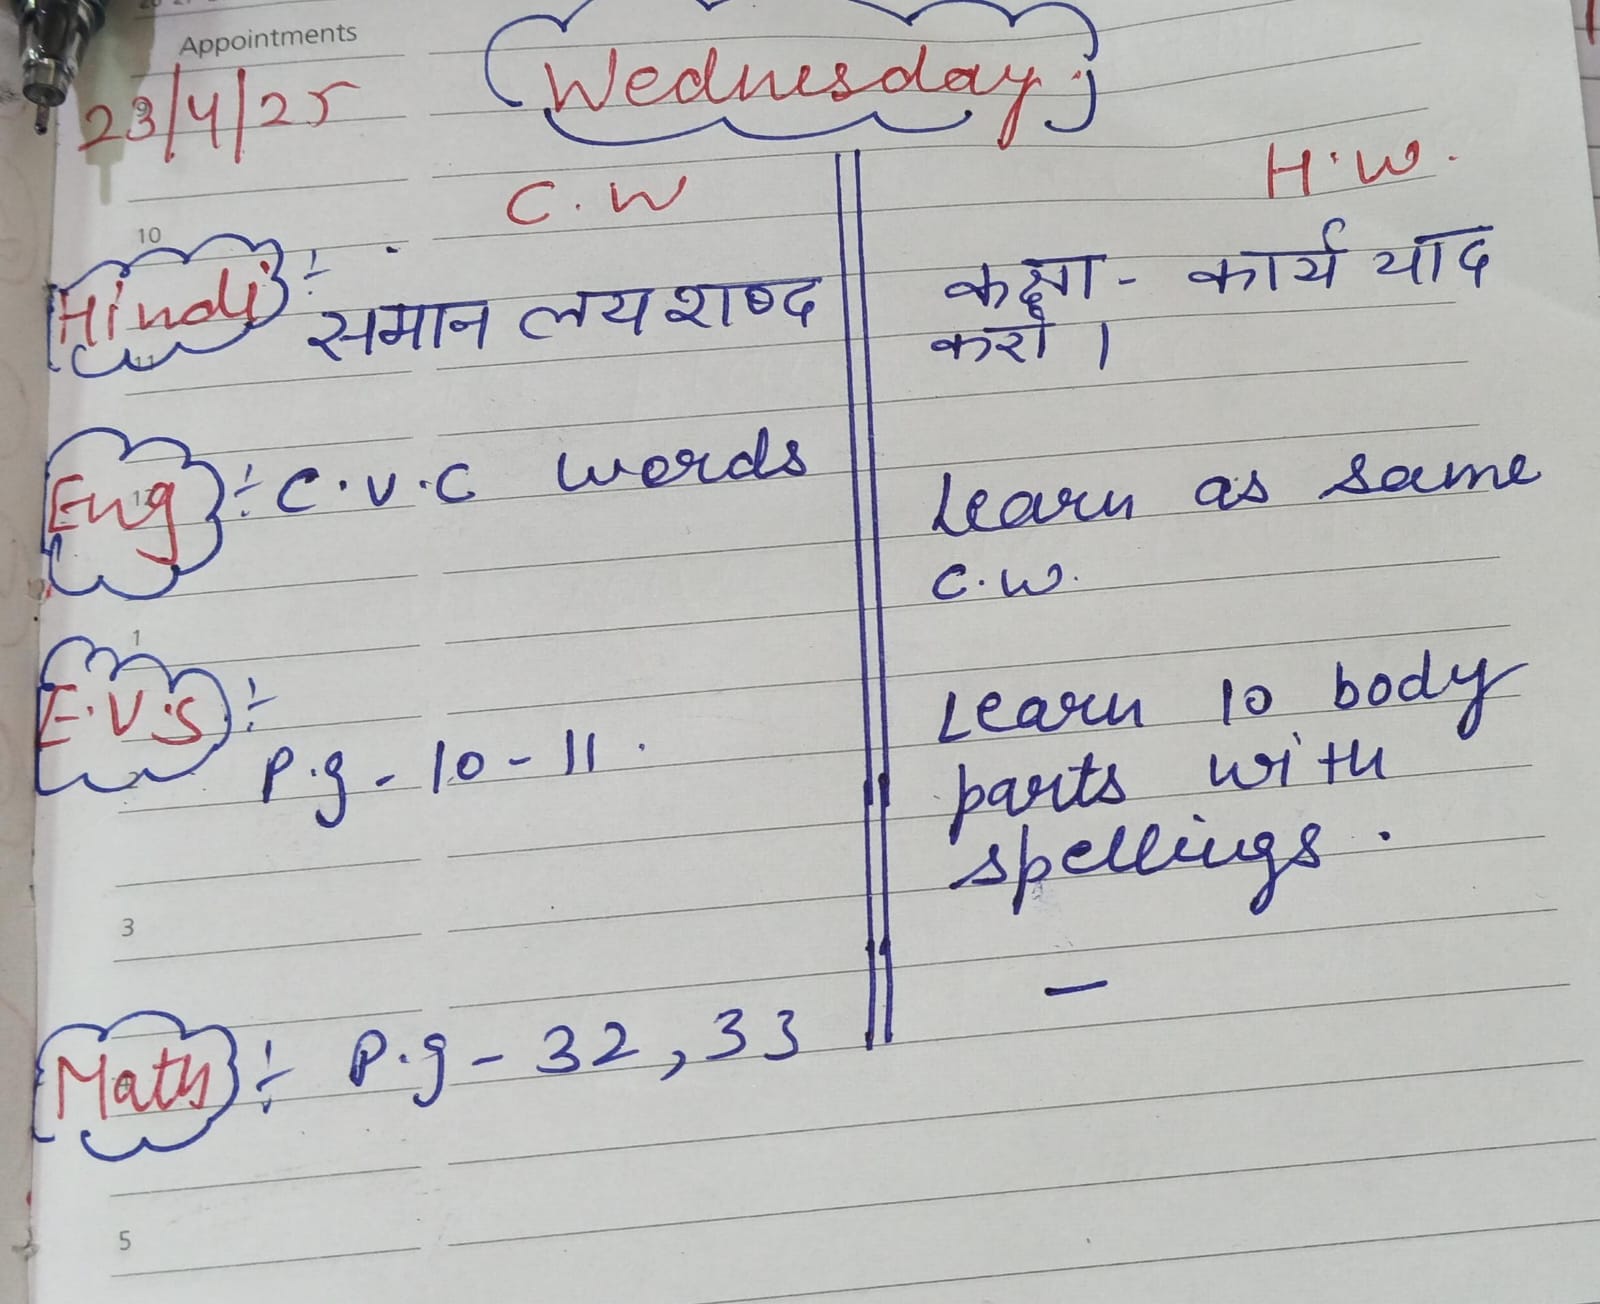 Appointments
Wednesday
23/4/25
C.W
H.W.
10
Hindi :-
समान लय शब्द
कक्षा - कार्य याद
करो ।
Eng :- C.V.C words
Learn as same
C.W.
1
E.V.S :-
P.g - 10 - 11 .
Learn 10 body
parts with
spellings .
3
-
Math :- P.g - 32 , 33
5